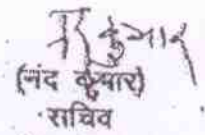 (नंद कुमार)
सचिव